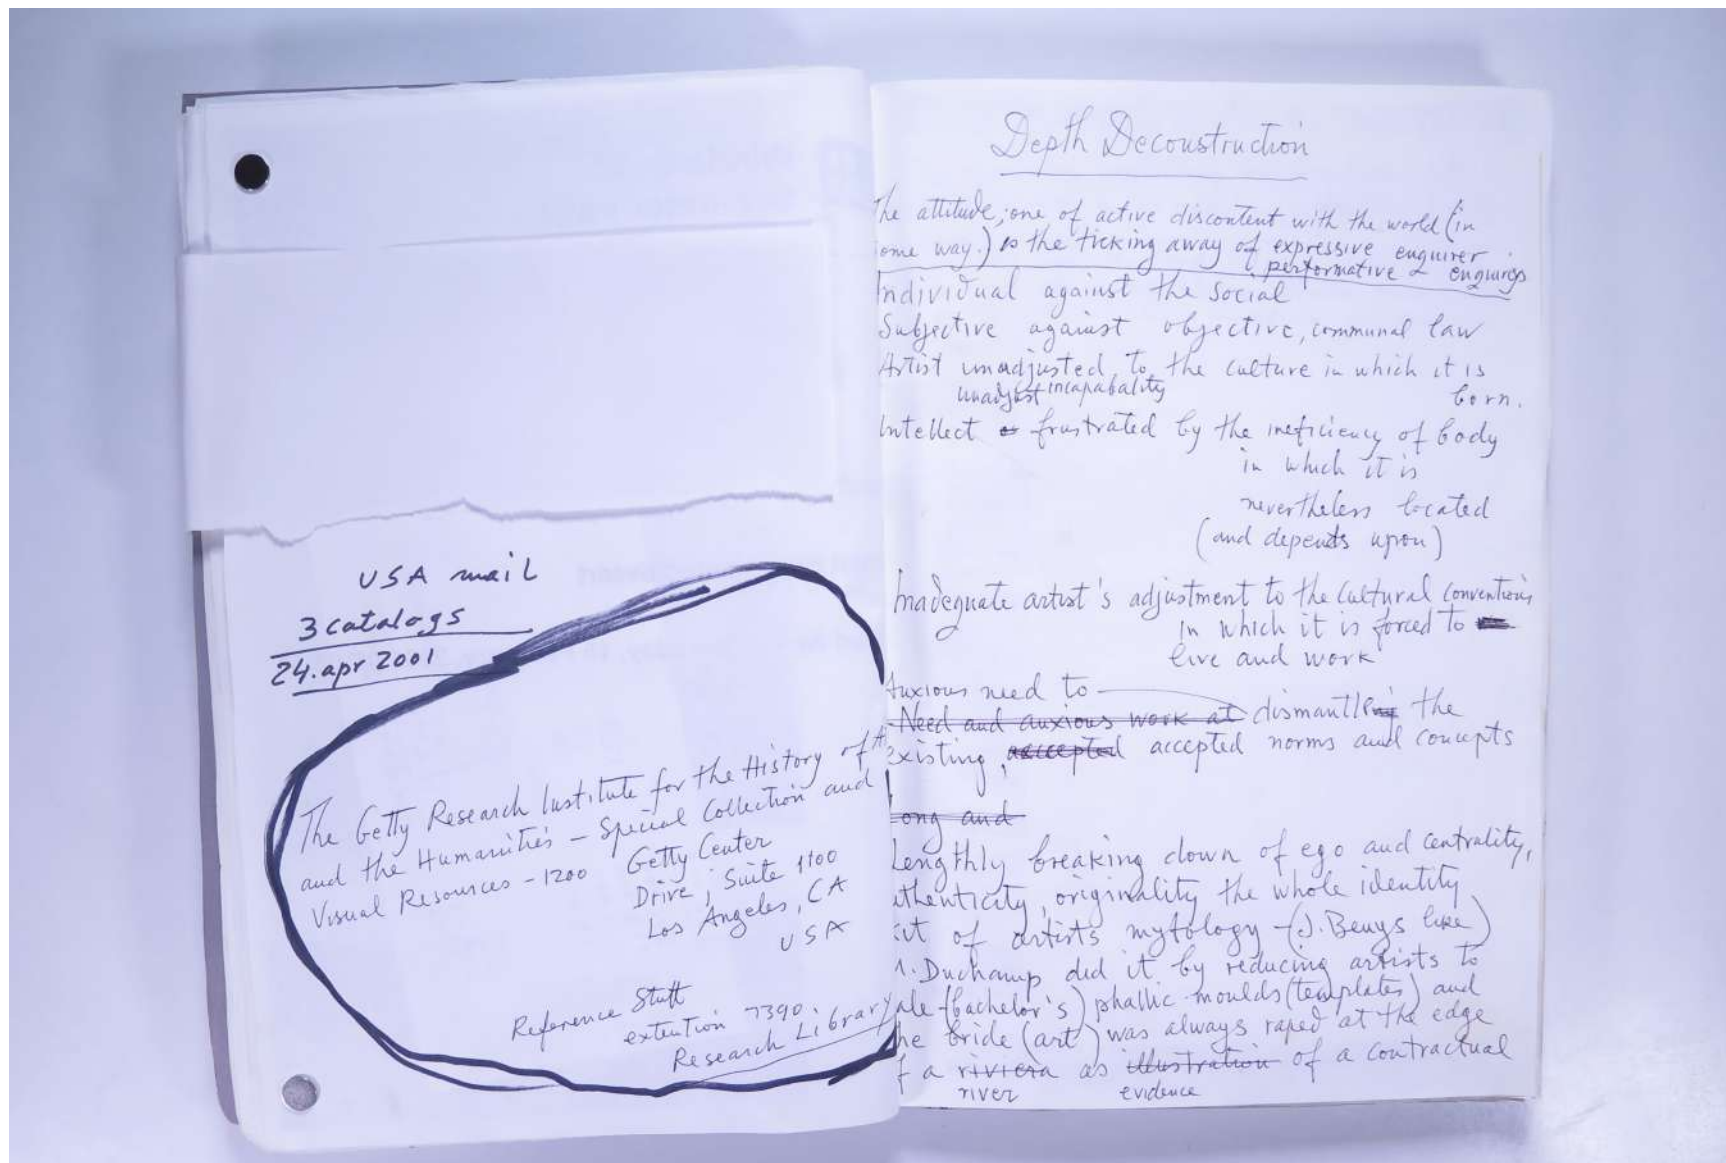 USA mail
3 catalogs
24. apr 2001
The Getty Research Institute for the History of A
and the Humanities – Special Collection and
Visual Resources – 1200 Getty Center
Drive, Suite 1100
Los Angeles, CA
USA
Reference Staff
extention 7390.
Research Library
Depth Deconstruction
he attitude; one of active discontent with the world (in
ome way.) is the ticking away of expressive enquirer
performative & enquirys
Individual against the Social
Subjective against objective, communal law
Artist unadjusted to the culture in which it is
unadjust incapabality born.
Intellect frustrated by the ineficiency of body
in which it is
nevertheless located
(and depends upon)
Inadequate artist's adjustment to the cultural conventions
in which it is forced to
live and work
Anxious need to
Need and anxious work at dismantling the
existing, accepted accepted norms and concepts
ong and
Lengthly breaking down of ego and centrality,
uthenticity, originality the whole identity
kit of artists mytology – (J. Beuys like)
M. Duchamp did it by reducing artists to
ale – (bachelor's) phallic moulds (templates) and
he bride (art) was always raped at the edge
f a riviera as illustration of a contractual
river evidence